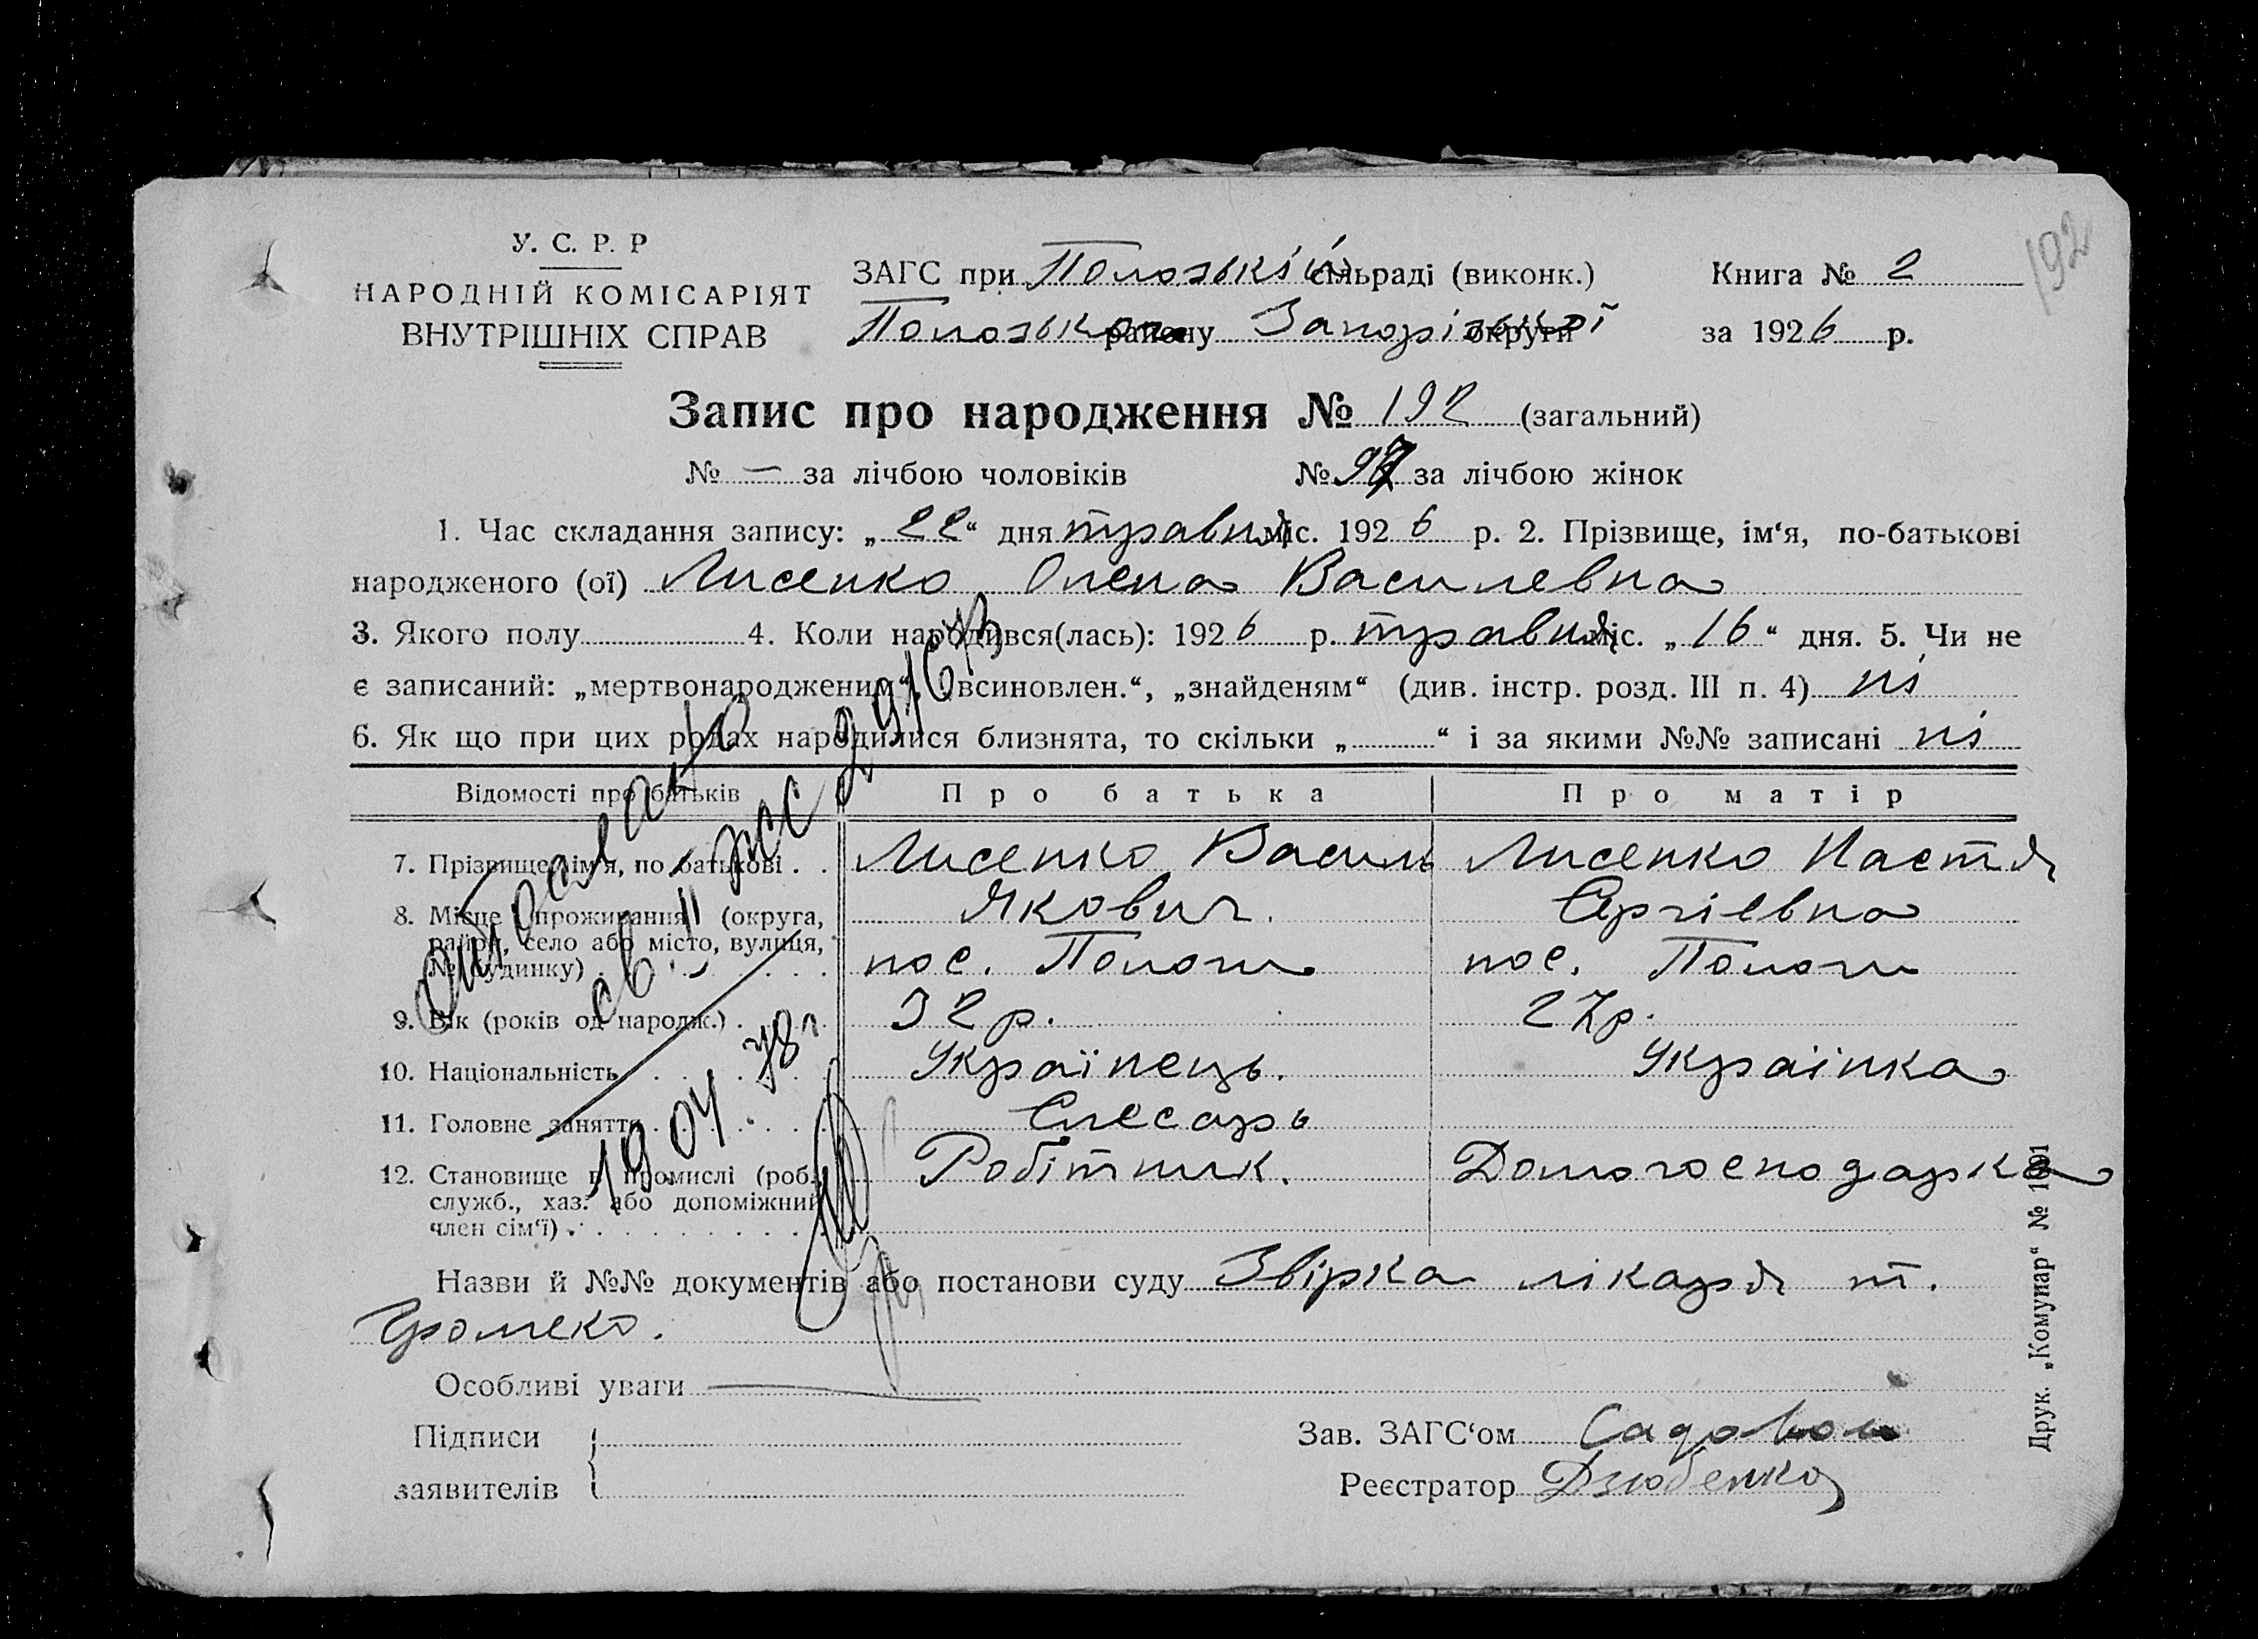 192
У. С. Р. Р
НАРОДНІЙ КОМІСАРІЯТ
ВНУТРІШНІХ СПРАВ
ЗАГС при Пологській сільраді (виконк.) Книга № 2
Пологського району Запорізької округи за 1926 р.
Запис про народження № 192 (загальний)
№ — за лічбою чоловіків № 97 за лічбою жінок
1. Час складання запису: „22“ дня травня міс. 1926 р. 2. Прізвище, ім‘я, по-батькові
народженого (ої) Лисенко Олена Василевна
3. Якого полу 4. Коли народився(лась): 1926 р. травня міс. „16“ дня. 5. Чи не
є записаний: „мертвонародженим“, „всиновлен.“, „знайденям“ (див. інстр. розд. III п. 4) ні
6. Як що при цих родах народилися близнята, то скільки „ “ і за якими №№ записані ні
Відомості про батьків Про батька Про матір
7. Прізвище, ім‘я, по батькові . . Лисенко Василь Лисенко Настя
Якович. Сергієвна
8. Місце проживання (округа,
район, село або місто, вулиця,
№ будинку) пос. Пологи пос. Пологи
9. Вік (років од народж.) 32 р. 27 р.
10. Національність Українець. Українка
11. Головне заняття Слесарь
12. Становище в промислі (роб., Робітник. Домогосподарка
служб., хаз. або допоміжний
член сім‘ї)
19 04 78 г
Назви й №№ документів або постанови суду Звірка лікаря т.
Громеко.
Особливі уваги —
Підписи
заявителів
Зав. ЗАГС‘ом Садовой
Реєстратор Дзюбенко
Друк. „Комунар“ № 1691